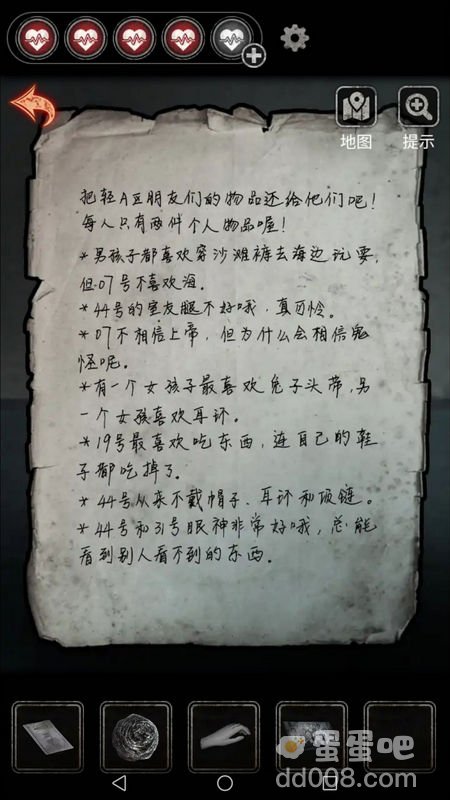 地图
提示
把轻A豆朋友们的物品还给他们吧！
每人只有两件个人物品喔！
*男孩子都喜欢穿沙滩裤去海边玩耍，
但07号不喜欢海。
*44号的室友腿不好哦，真可怜。
*07不相信上帝，但为什么会相信鬼
怪呢。
*有一个女孩子最喜欢兔子头带，另
一个女孩喜欢耳环。
*19号最喜欢吃东西，连自己的鞋
子都吃掉了。
*44号从来不戴帽子、耳环和项链。
*44号和31号眼神非常好哦，总能
看到别人看不到的东西。
蛋蛋吧
dd008.com